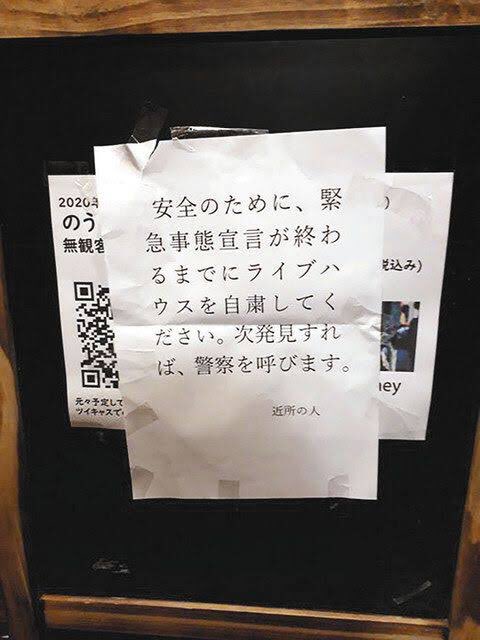 安全のために、緊
急事態宣言が終わ
るまでにライブハ
ウスを自粛してく
ださい。次発見すれ
ば、警察を呼びます。
近所の人
2020年
のう
無観客
元々予定して
ツイキャスで
の
税込み)
ney